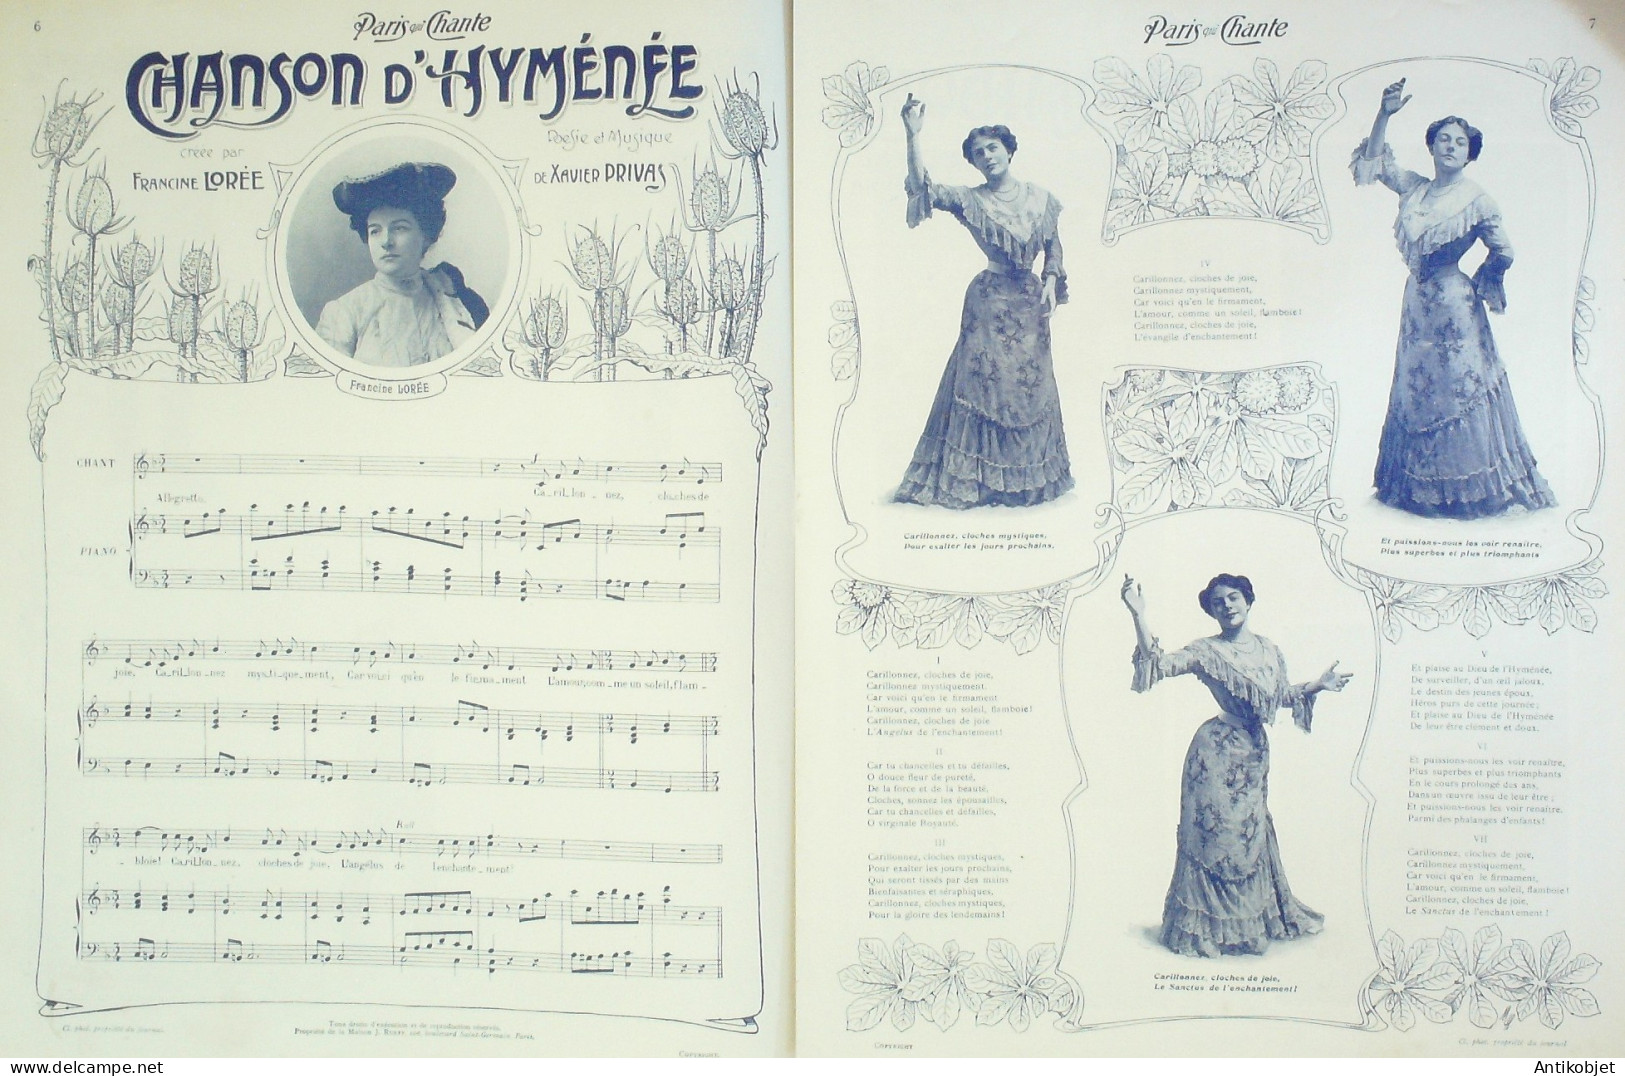 6
Paris qui Chante
CHANSON D'HYMÉNÉE
créée par
FRANCINE LORÉE
Poésie et Musique
DE XAVIER PRIVAS
Francine LORÉE
CHANT
Allegretto.
PIANO
Ca_ril_lon _ nez, cloches de
joie, Ca_ril_lon_nez mys_ti_que_ment, Car voi_ci qu'en le fir_ma_ment L'amour, com_me un soleil, flam_
_ bloie! Ca_ril_lon_nez, cloches de joie, L'angélus de l'enchante_ment!
Rall
Cl. phot. propriété du journal.
Tous droits d'exécution et de reproduction réservés.
Boulevard Saint-Germain, Paris.
COPYRIGHT.
Paris qui Chante
7
Carillonnez, cloches mystiques,
Pour exalter les jours prochains,
IV
Carillonnez, cloches de joie,
Carillonnez mystiquement,
Car voici qu'en le firmament,
L'amour, comme un soleil, flamboie!
Carillonnez, cloches de joie,
L'évangile d'enchantement!
Et puissions-nous les voir renaître,
Plus superbes et plus triomphants
I
Carillonnez, cloches de joie,
Carillonnez mystiquement.
Car voici qu'en le firmament
L'amour, comme un soleil, flamboie!
Carillonnez, cloches de joie
L'Angelus de l'enchantement!
II
Car tu chancelles et tu défailles,
O douce fleur de pureté,
De la force et de la beauté.
Cloches, sonnez les épousailles,
Car tu chancelles et défailles,
O virginale Royauté.
III
Carillonnez, cloches mystiques,
Pour exalter les jours prochains,
Qui seront tissés par des mains
Bienfaisantes et séraphiques,
Carillonnez, cloches mystiques,
Pour la gloire des lendemains!
Carillonnez, cloches de joie,
Le Sanctus de l'enchantement!
V
Et plaise au Dieu de l'Hyménée,
De surveiller, d'un œil jaloux,
Le destin des jeunes époux,
Héros purs de cette journée;
Et plaise au Dieu de l'Hyménée
De leur être clément et doux.
VI
Et puissions-nous les voir renaître,
Plus superbes et plus triomphants
En le cours prolongé des ans,
Dans un œuvre issu de leur être;
Et puissions-nous les voir renaître.
Parmi des phalanges d'enfants!
VII
Carillonnez, cloches de joie,
Carillonnez mystiquement,
Car voici qu'en le firmament,
L'amour, comme un soleil, flamboie!
Carillonnez, cloches de joie,
Le Sanctus de l'enchantement!
COPYRIGHT
Cl. phot. propriété du journal
Antikobjet